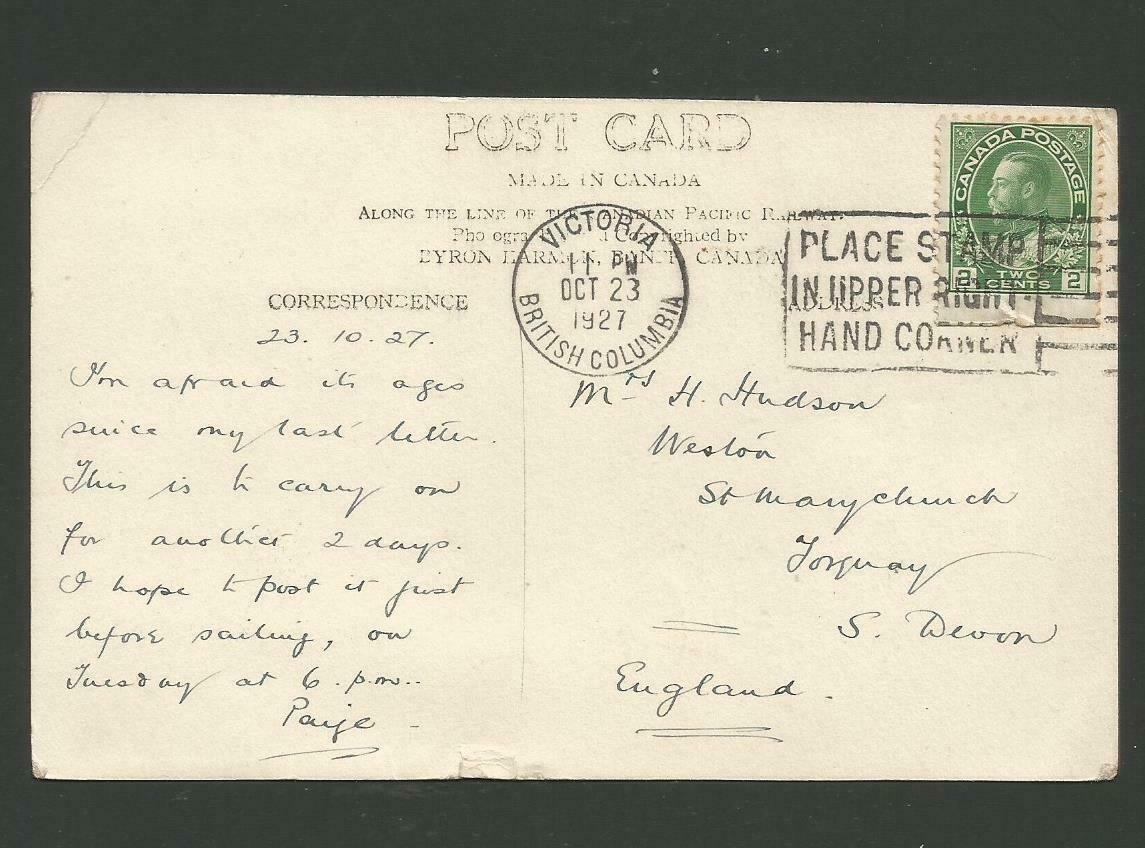 POST CARD
MADE IN CANADA
ALONG THE LINE OF THE CANADIAN PACIFIC RAILWAY.
Photographed and Copyrighted by
BYRON HARMON, BANFF, CANADA
CORRESPONDENCE
ADDRESS
VICTORIA
11 PM
OCT 23
1927
BRITISH COLUMBIA
PLACE STAMP
IN UPPER RIGHT
HAND CORNER
CANADA POSTAGE
2 TWO CENTS 2
23. 10. 27.
I'm afraid its ages
since my last letter.
This is to carry on
for another 2 days.
I hope to post it just
before sailing, on
Tuesday at 6. p.m..
Paije -
Mrs H. Hudson
Weston
St Marychurch
Torquay
S. Devon
England.